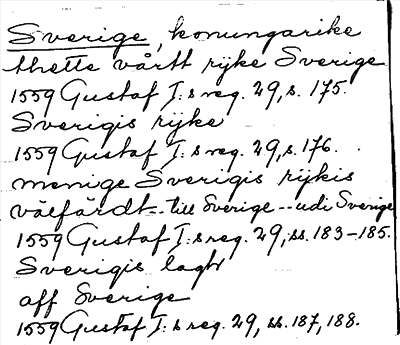 Sverige, konungarike
thette vårtt rijke Sverige
1559 Gustaf I:s reg. 29, s. 175.
Sverigis rijke
1559 Gustaf I:s reg. 29, s. 176.
menige Sverigis rijkis
välfärdt -- till Sverige -- udi Sverige
1559 Gustaf I:s reg. 29, ss. 183-185.
Sverigis lagh
aff Sverige
1559 Gustaf I:s reg. 29, ss. 187, 188.